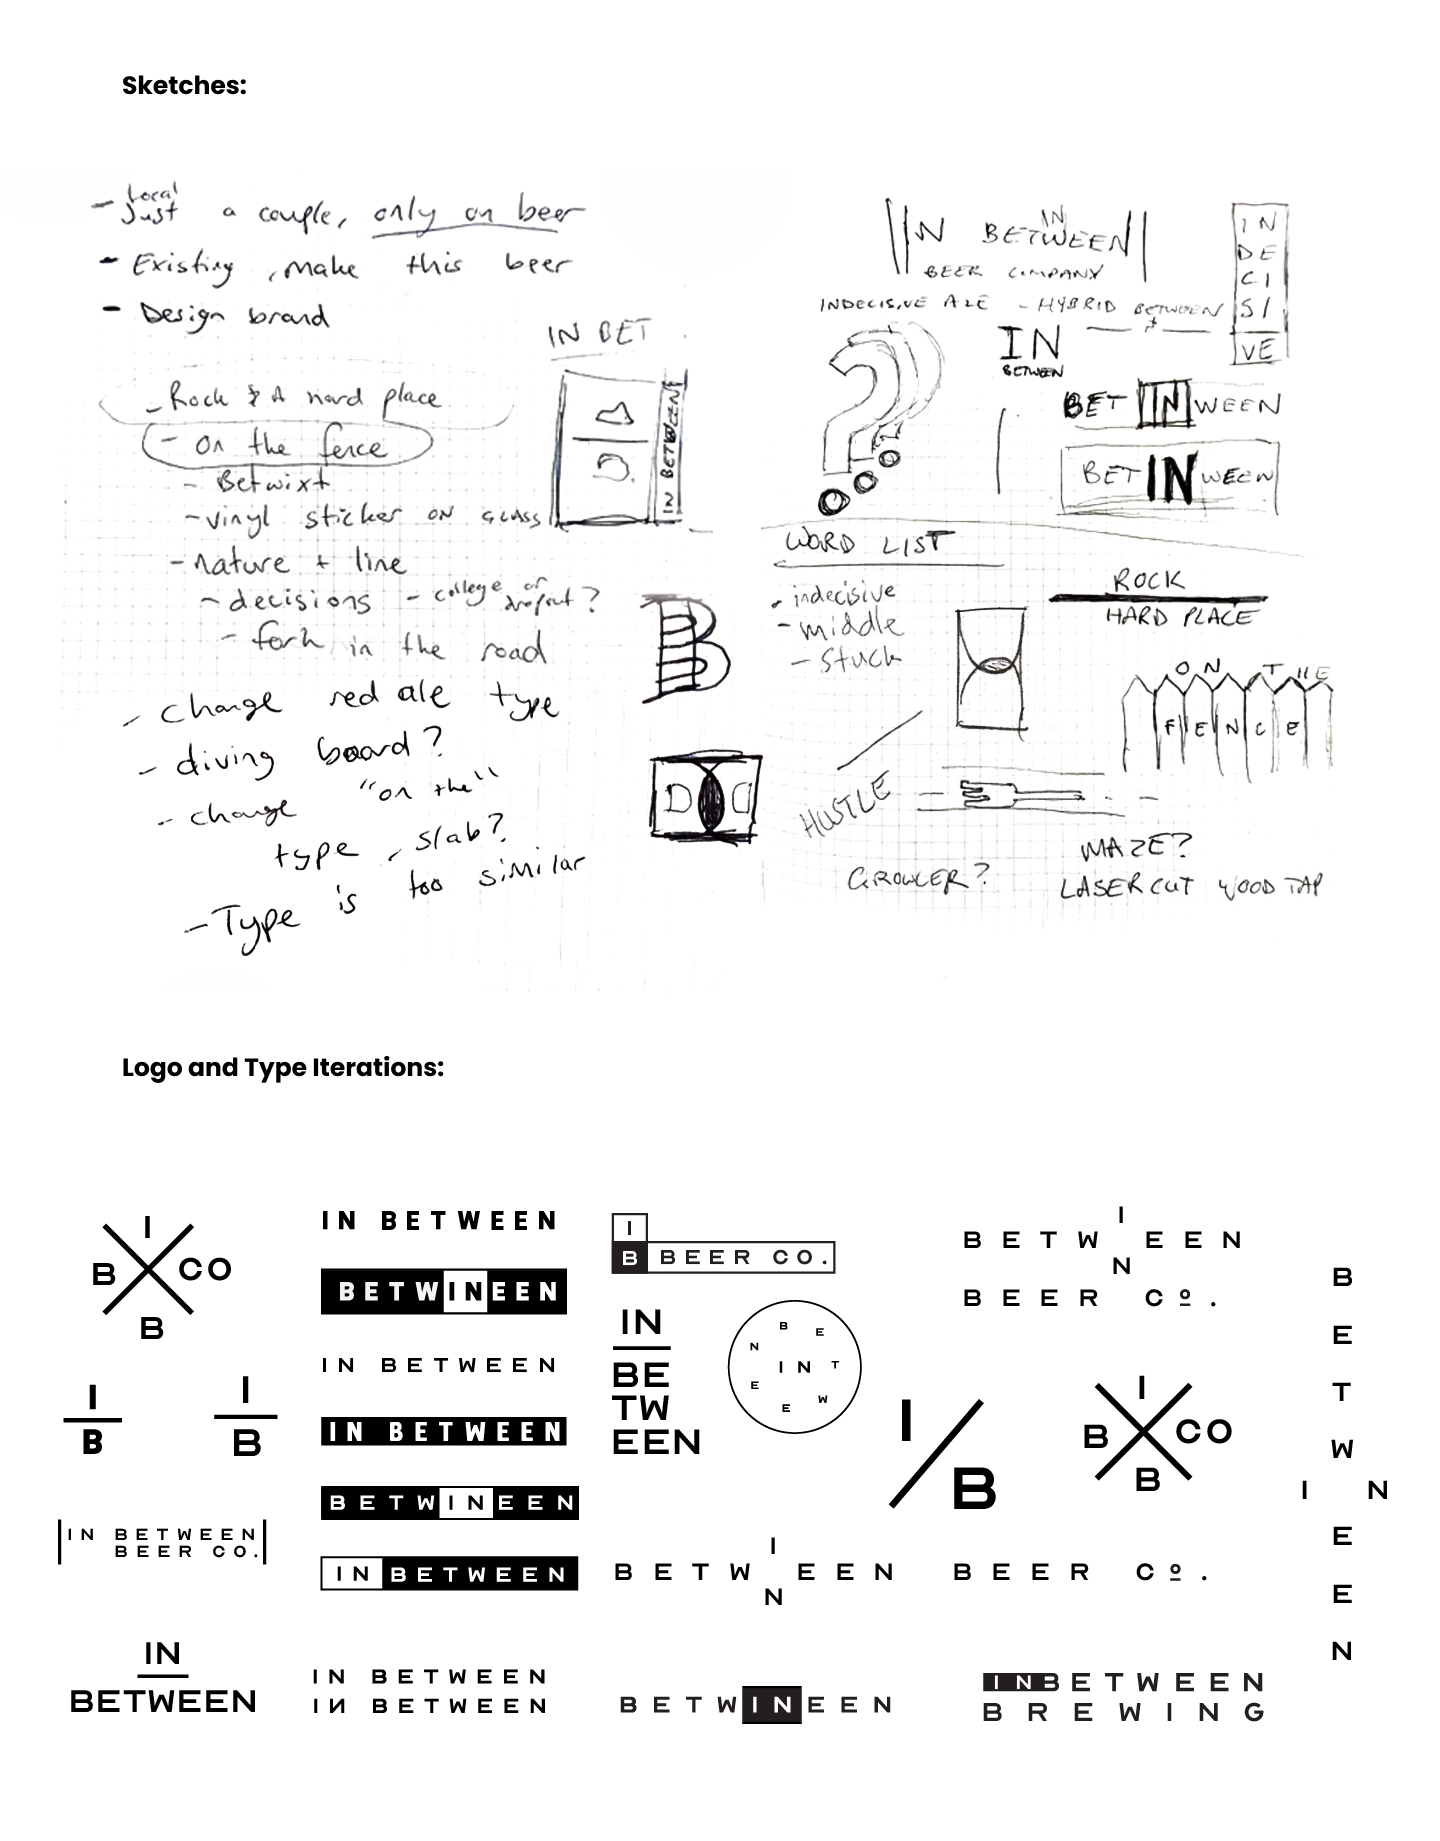 Sketches:
- Local
Just a couple, only on beer
- Existing, make this beer
- Design brand
- Rock & A hard place
- on the fence
- Betwixt
- vinyl sticker on GLASS
- nature + line
- decisions - college or dropout?
- fork in the road
- change red ale type
- diving board?
- change "on the"
type, slab?
- Type is too similar
IN BET
IN BETWEEN
B
D D
IN BETWEEN
IN
BEER COMPANY
INDECISIVE ALE - HYBRID BETWEEN
IN
BETWEEN
IN
DE
CI
SI
VE
BET IN WEEN
BET IN WEEN
WORD LIST
- indecisive
- middle
- stuck
ROCK
HARD PLACE
ON THE
FENCE
HUSTLE
GROWLER?
MAZE?
LASER CUT WOOD TAP
Logo and Type Iterations:
I
B CO
B
I
B
I
B
IN BETWEEN
BEER CO.
IN
BETWEEN
IN BETWEEN
BETWINEEN
IN BETWEEN
IN BETWEEN
BETWINEEN
IN BETWEEN
IN BETWEEN
IN BETWEEN
I
B BEER CO.
IN
BE
TW
EEN
BETWEEN
IN
I
BETW EEN
N
BEER Cº.
I/B
I
B CO
B
I
BETW EEN BEER Cº.
N
BETWINEEN
INBETWEEN
BREWING
B
E
T
W
I N
E
E
N